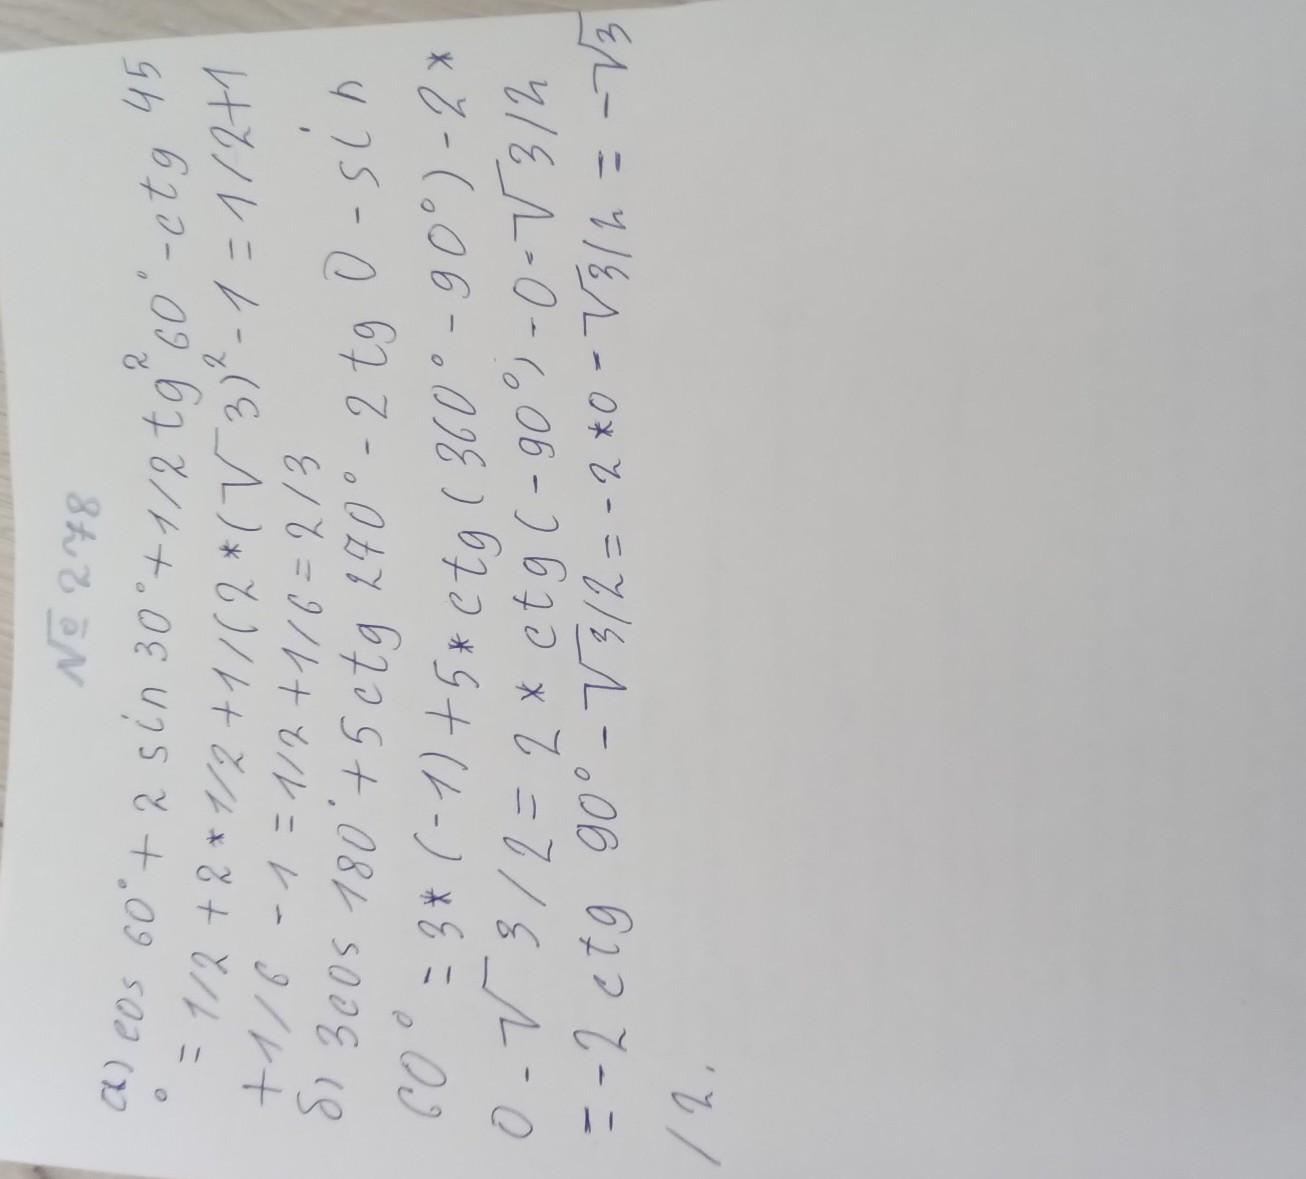 № 278
а) cos 60° + 2 sin 30° + 1/2 tg² 60° - ctg 45
° = 1/2 + 2 * 1/2 + 1/(2 * (√3)² - 1 = 1/2 + 1
+ 1/6 - 1 = 1/2 + 1/6 = 2/3
б) 3cos 180° + 5ctg 270° - 2 tg 0 - sin
60° = 3 * (-1) + 5 * ctg (360° - 90°) - 2 *
0 - √3/2 = 2 * ctg (-90°) - 0 - √3/2
= -2 ctg 90° - √3/2 = -2 * 0 - √3/2 = -√3
/2.